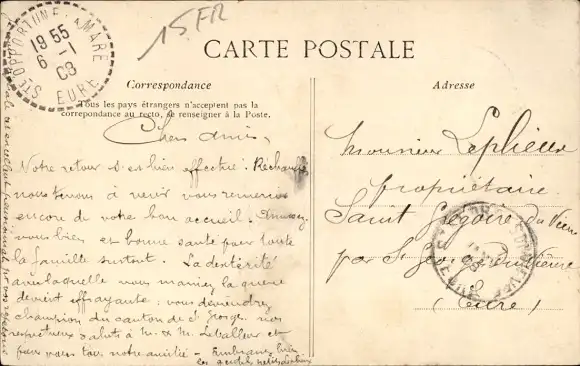 15 FR
STE OPPORTUNE LA MARE
19 55
6 - 1
03
EURE
CARTE POSTALE
Correspondance
Adresse
Tous les pays étrangers n'acceptent pas la
correpondance au recto, se renseigner à la Poste.
Chers amis,
Notre retour s'est bien effectué. Réchauffés
nous tenons à venir vous remercier
encore de votre bon accueil.
vous bien et bonne santé pour toute
la famille surtout. La dextérité
avec laquelle vous maniez la queue
devient effrayante : vous deviendrez
champion du canton de St Georges. nos
respectueux saluts à M. & M. Levalleur et
pour vous tous notre amitié - Embrassez bien
les gentils petits
Monsieur Lephieux
propriétaire
Saint Grégoire du Vièvre
par St Georges du Vièvre
(Eure)